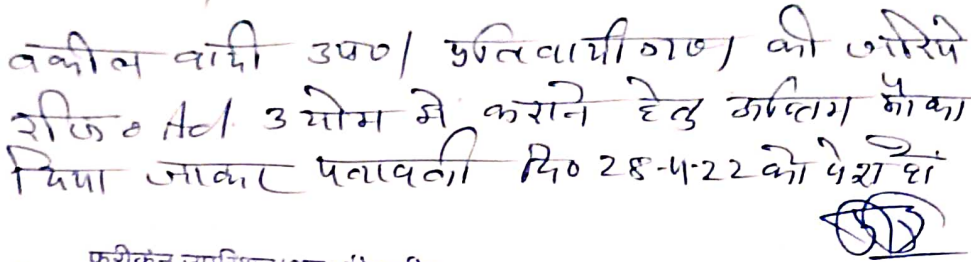 वकील वादी उप०/ प्रतिवादीगण/ की जरिये
रजि० Ad. 3 योम मे कराने हेतु अन्तिम मौका
दिया जाकर पत्रावली दि० 28-4-22 को पेश हो